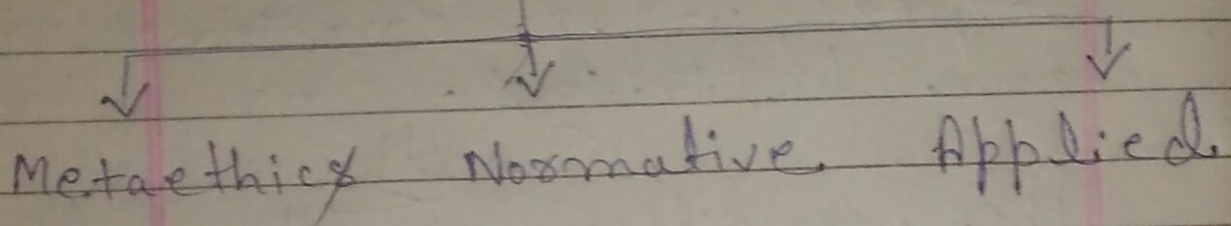 Metaethics Normative Applied